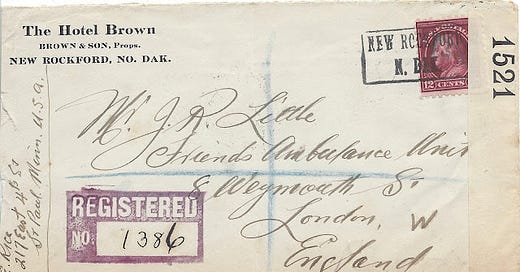 The Hotel Brown
BROWN & SON, Props.
NEW ROCKFORD, NO. DAK.
NEW ROCKFORD
N. DAK
12 CENTS 12
1521
Mr J. R. Little
Friends Ambulance Unit
8 Weymouth St
London, W
England
REGISTERED
NO. 1386
Rice
217 East 4th St
St Paul. Minn. U.S.A.